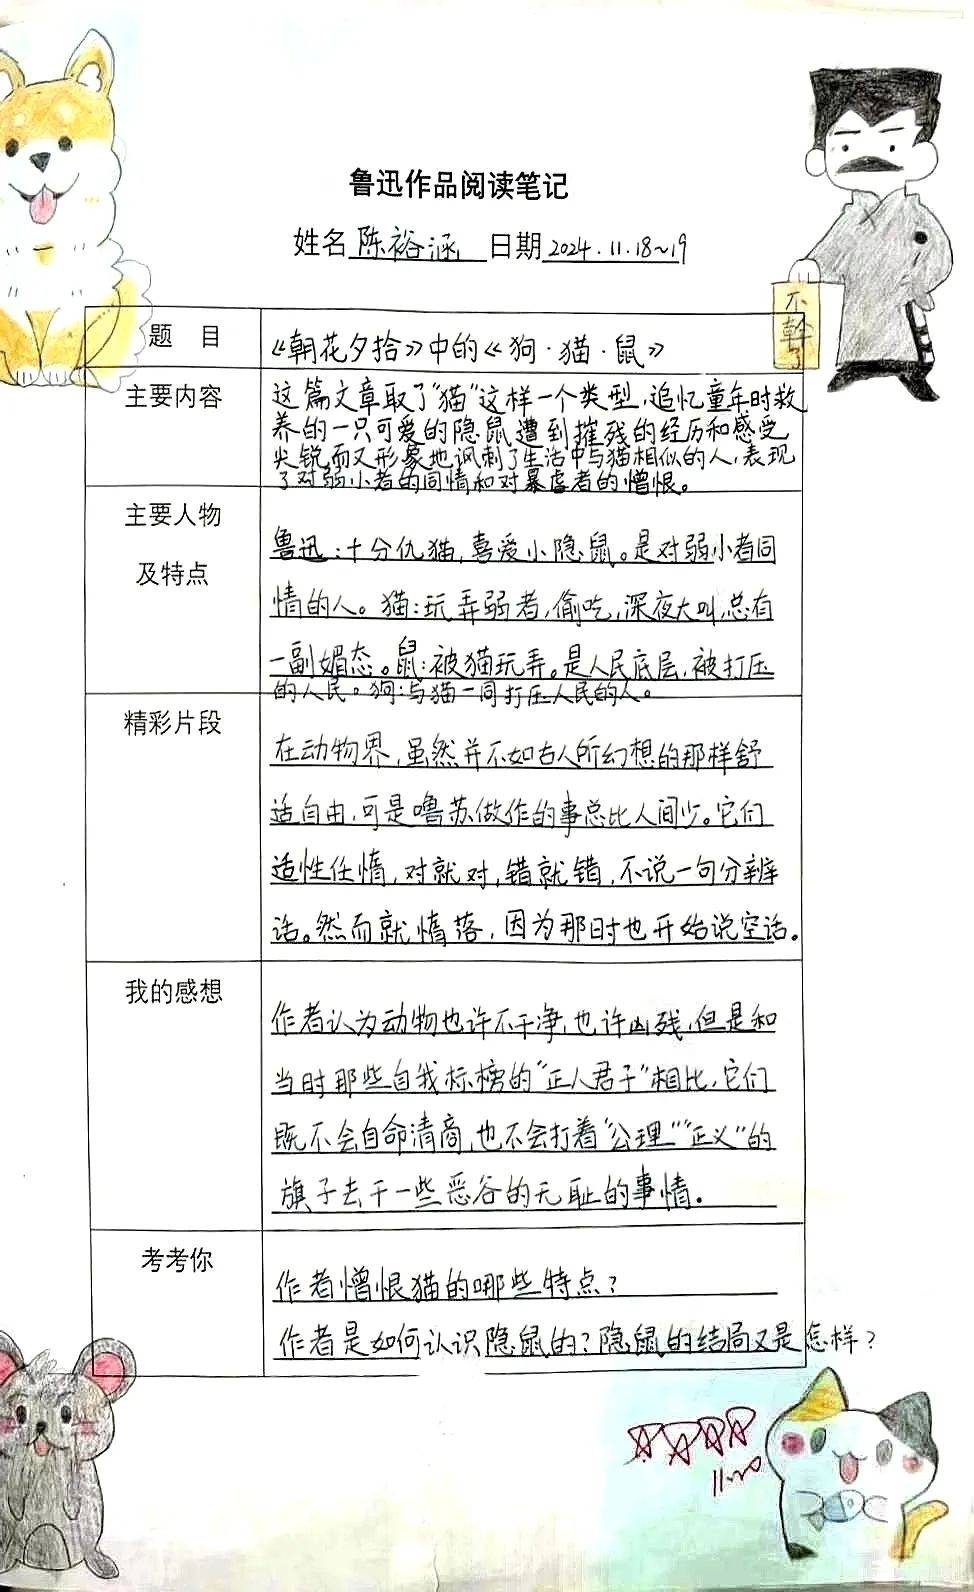 鲁迅作品阅读笔记
姓名 陈裕涵 日期 2024.11.18~19
不
幹
了
题 目
《朝花夕拾》中的《狗·猫·鼠》
主要内容
这篇文章取了“猫”这样一个类型，追忆童年时救
养的一只可爱的隐鼠遭到摧残的经历和感受
尖锐而又形象地讽刺了生活中与猫相似的人，表现
了对弱小者的同情和对暴虐者的憎恨。
主要人物
及特点
鲁迅：十分仇猫，喜爱小隐鼠。是对弱小者同
情的人。猫：玩弄弱者，偷吃，深夜大叫，总有
一副媚态。鼠：被猫玩弄。是人民底层，被打压
的人民。狗：与猫一同打压人民的人。
精彩片段
在动物界，虽然并不如古人所幻想的那样舒
适自由，可是噜苏做作的事总比人间少。它们
适性任情，对就对，错就错，不说一句分辨
话。然而就惰落，因为那时也开始说空话。
我的感想
作者认为动物也许不干净，也许凶残，但是和
当时那些自我标榜的“正人君子”相比，它们
既不会自命清高，也不会打着“公理”“正义”的
旗子去干一些恶俗的无耻的事情。
考考你
作者憎恨猫的哪些特点？
作者是如何认识隐鼠的？隐鼠的结局又是怎样？
11.20